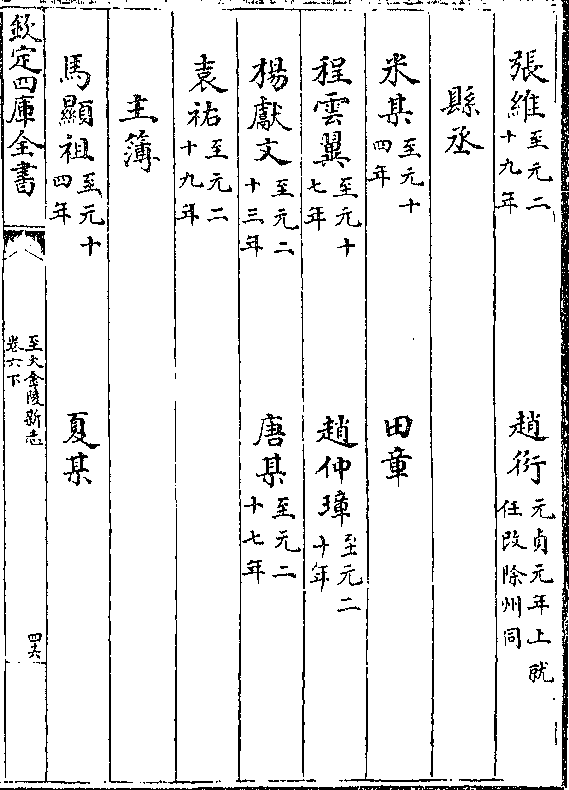 張維至元二十九年　趙衍元貞元年上就任改除州同
縣丞
米某至元十四年　田章
程雲翼至元十七年　趙仲璋至元二十年
楊獻文至元二十三年　唐某至元二十七年
袁祐至元二十九年
主簿
馬顯祖至元十四年　夏某
欽定四庫全書　至大金陵新志卷六下　四六